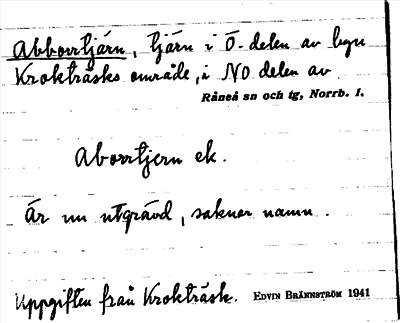 Abborrtjärn, tjärn i Ö-delen av byn
Krokträsks område, i NO delen av
Råneå sn och tg, Norrb. l.
Aborrtjern ek.
Är nu utgrävd, saknar namn.
Uppgiften från Krokträsk. EDVIN BRÄNNSTRÖM 1941